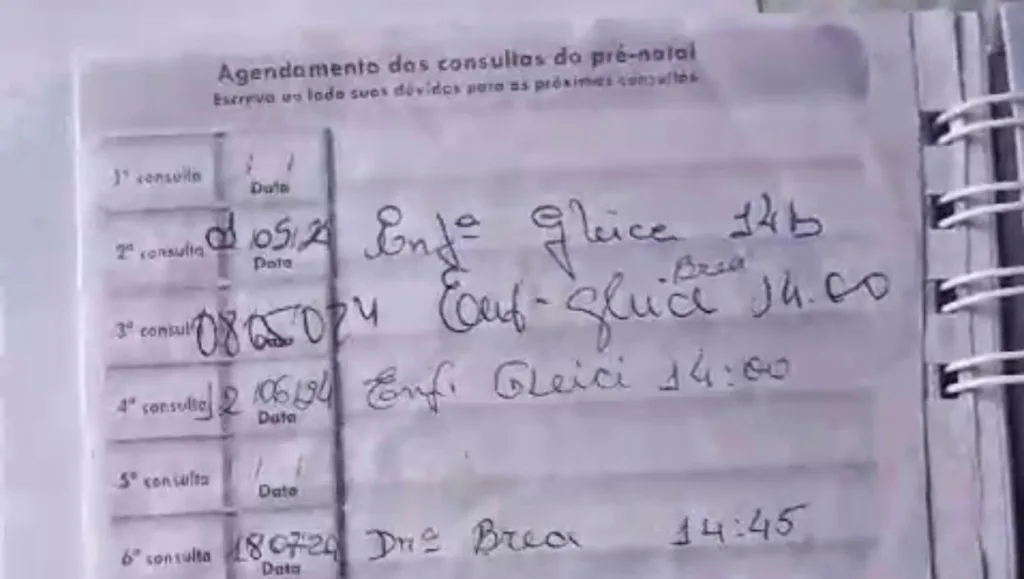 Agendamento das consultas do pré-natal
Escreva ao lado suas dúvidas para as próximas consultas
1ª consulta / / Data
2ª consulta 05/24 Data Enfª Gleice 14h
Brea
3ª consulta 08 05 024 Gleici 14.00
4ª consulta 12/06/24 Data Enf. Gleici 14:00
5ª consulta / / Data
6ª consulta 18 07 24 Data Drª Brea 14:45